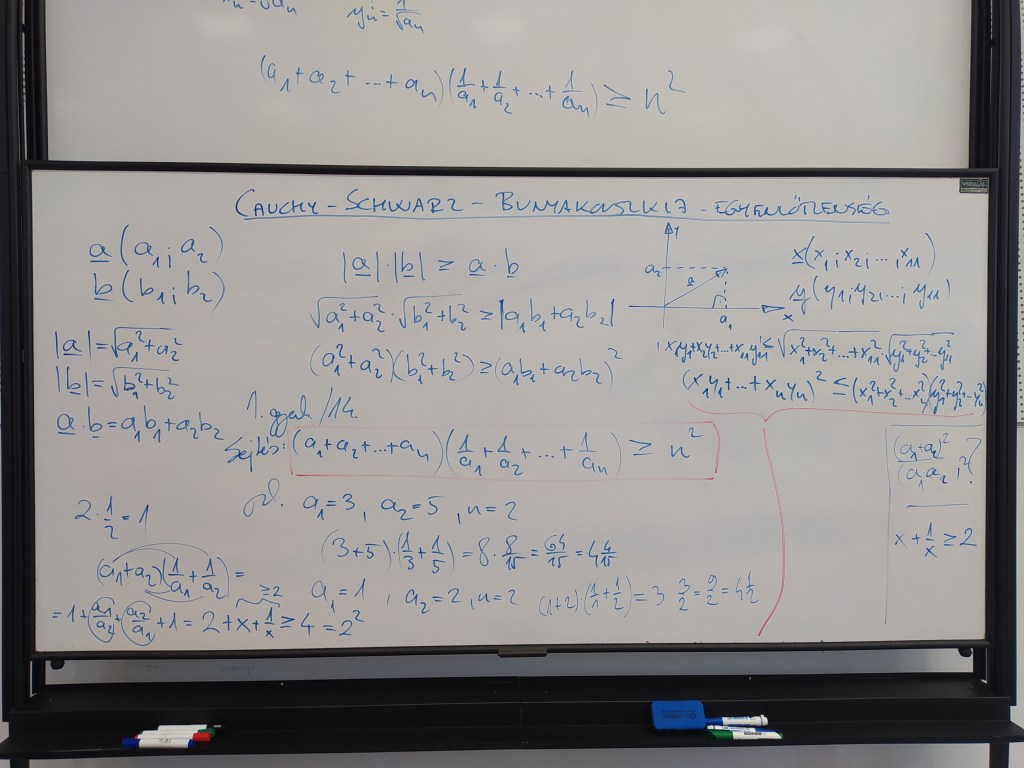 yₙ = 1/√aₙ
(a₁+a₂+...+aₙ)(1/a₁+1/a₂+...+1/aₙ) ≥ n²
CAUCHY-SCHWARZ-BUNYAKOVSZKIJ-EGYENLŐTLENSÉG
a(a₁; a₂)
b(b₁; b₂)
|a| = √a₁²+a₂²
|b| = √b₁²+b₂²
a·b = a₁b₁+a₂b₂
|a|·|b| ≥ a·b
√a₁²+a₂²·√b₁²+b₂² ≥ |a₁b₁+a₂b₂|
(a₁²+a₂²)(b₁²+b₂²) ≥ (a₁b₁+a₂b₂)²
y
a₂
a
a₁
x
x(x₁; x₂; ...; x₁₁)
y(y₁; y₂...; y₁₁)
|x₁y₁+x₂y₂+...+x₁₁y₁₁| ≤ √x₁²+x₂²+...+x₁₁² √y₁²+y₂²+...y₁₁²
(x₁y₁+...+xₙyₙ)² ≤ (x₁²+x₂²+...xₙ²)(y₁²+y₂²+...yₙ²)
1. gyak/14.
Sejtés: (a₁+a₂+...+aₙ)(1/a₁+1/a₂+...+1/aₙ) ≥ n²
pl. a₁=3, a₂=5, n=2
(3+5)·(1/3+1/5) = 8·8/15 = 64/15 = 4 4/15
a₁=1, a₂=2, n=2 (1+2)·(1/1+1/2) = 3 3/2 = 9/2 = 4 1/2
2·1/2 = 1
(a₁+a₂)(1/a₁+1/a₂) =
≥2
= 1+a₁/a₂+a₂/a₁+1 = 2+x+1/x ≥ 4 = 2²
x+1/x ≥ 2